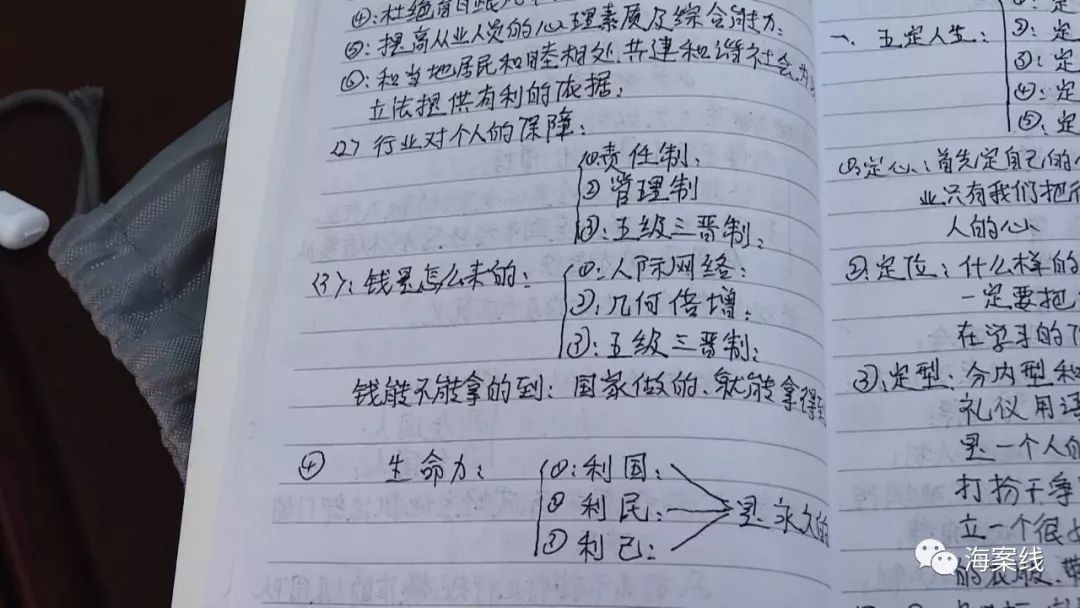 ④:杜绝盲目跟
⑤:提高从业人员的心理素质及综合能力:
⑥:和当地居民和睦相处.共建和谐社会.为
立法提供有利的依据:
(2) 行业对个人的保障:
①责任制:
② 管理制
③:五级三晋制:
(3):钱是怎么来的:
①:人际网络:
②:几何倍增:
③:五级三晋制:
钱能不能拿的到:国家做的.就能拿得到
④ 生命力:
①:利国:
② 利民:
③ 利己:
是永久的
一、五定人生:
②:定
③:定
④:定
⑤:定
①:定心:首先定自己的
业.只有我们把
人的心.
②:定位:什么样的
一定要把
在学习的
③:定型:分内型和
礼仪用语
是一个人的
打扮干净
立一个很
的衣服.带
海案线